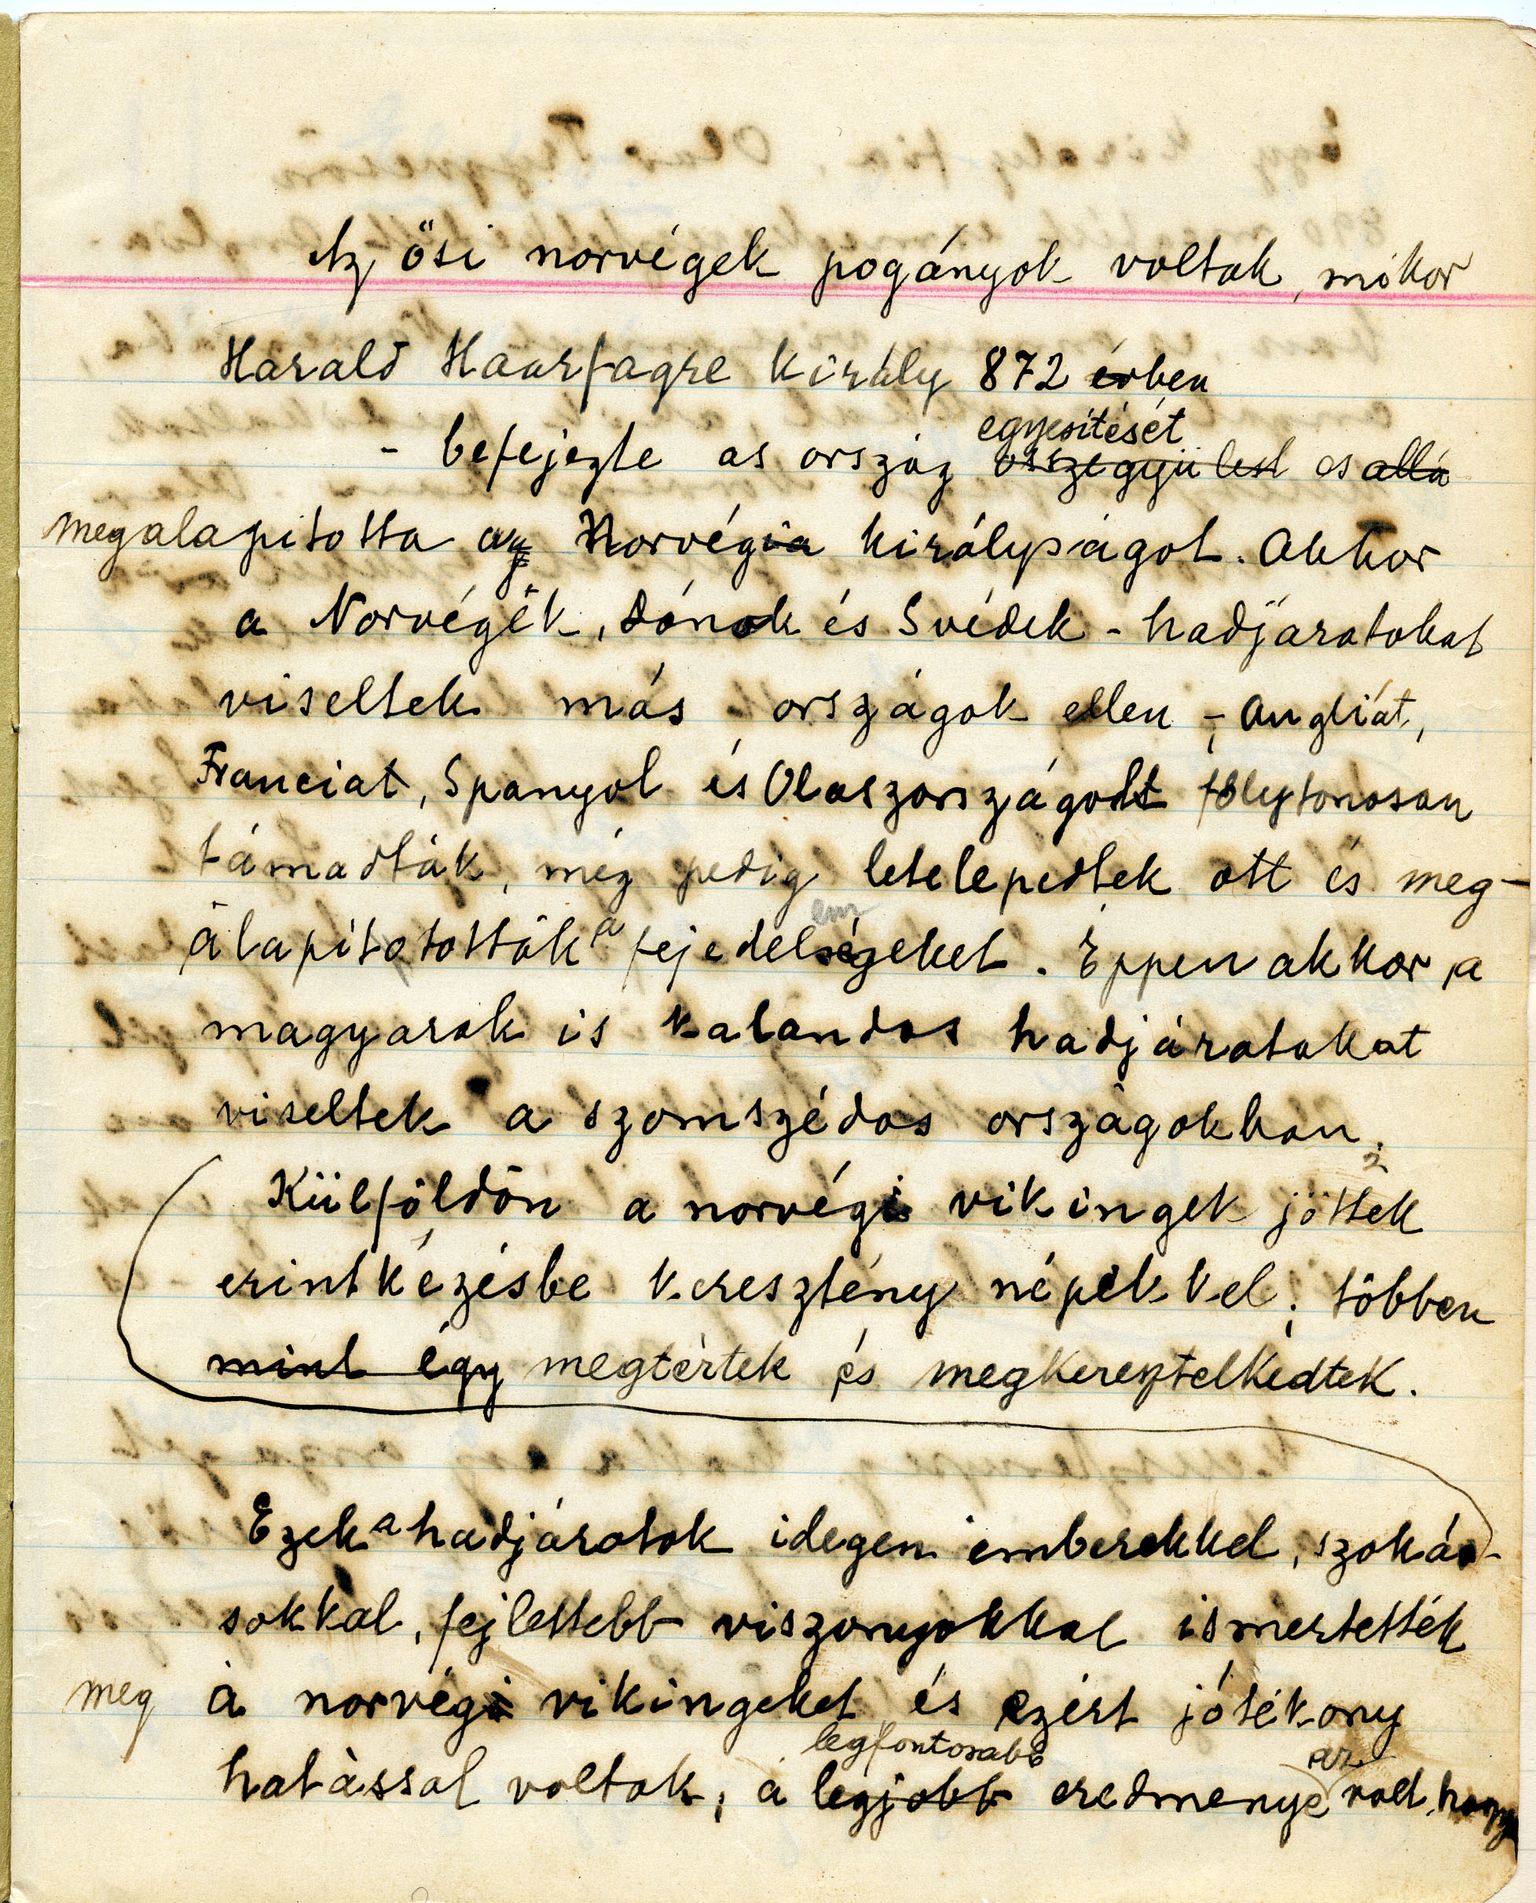 Az ősi norvégek pogányok voltak, mikor
Harald Haarfagre király 872 érben
egyesítését
- befejezte as ország összegyülest es alla
megalapitotta az Norvégia királyságot. Akkor
a Norvégek, dánok és Svédek - hadjáratokat
viseltek más országok ellen, - Angliát,
Franciat, Spanyol és Olaszországolt folytonosan
támadták, még pedig letelepedtek ott és meg-
em
álapitotották a fejedelségeket. Éppen akkor, a
magyarok is kalandos hadjáratokat
viseltek a szomszédos országokban.
Külföldön a norvégi vikingek jöttek
erintkézésbe keresztény népekkel; többen
mint égy megtértek és megkeresztelkedtek.
Ezek a hadjáratok idegen emberekkel, szoká-
sokkal, fejlettebb viszonyokkal ismertették
meg a norvégi vikingeket és ezért jótékony
legfontosabb az
hatással voltak, a legjobb eredménye volt, hogy